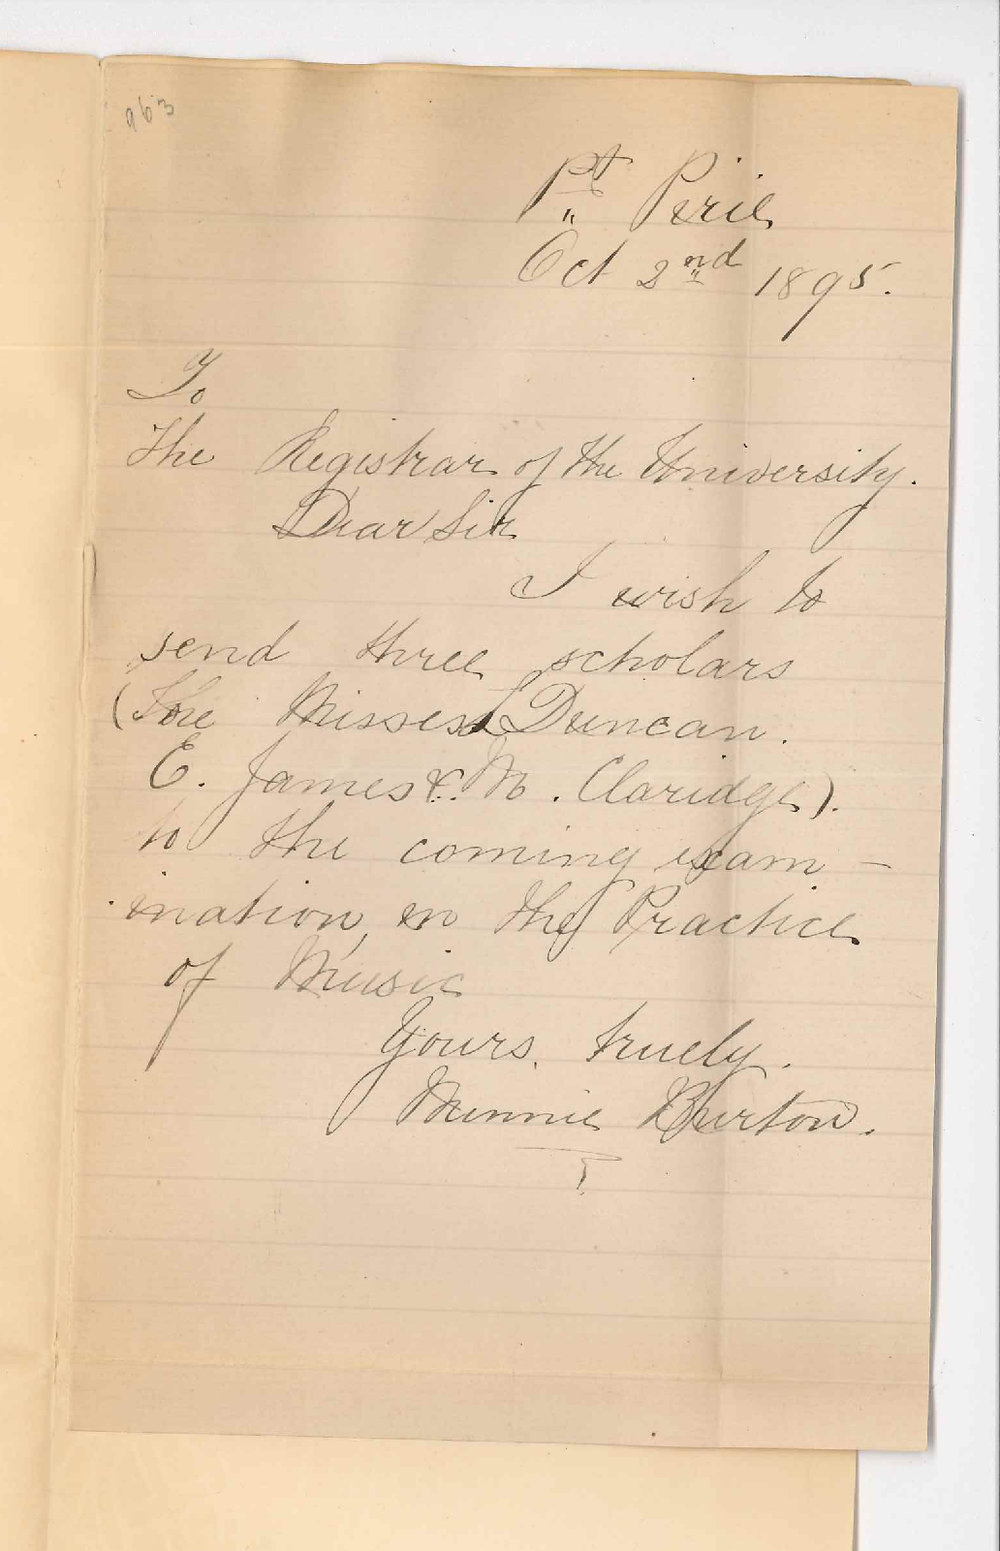 963
Pt Pirie
Oct 2nd 1895.
To
The Registrar of the University.
Dear Sir
I wish to
send three scholars
(The Misses L Duncan.
E. James &. M. Claridge).
to the coming exam -
ination, in the Practice
of Music
Yours truely.
Minnie Burton.